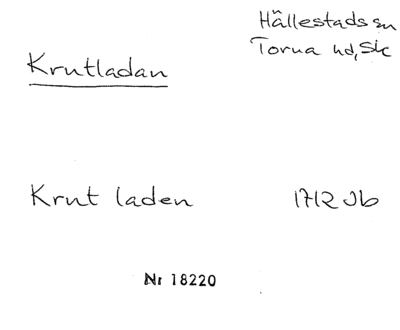 Hällestads sn
Torna hd, Sk
Krutladan
Krut laden 1712 Jb
Nr 18220